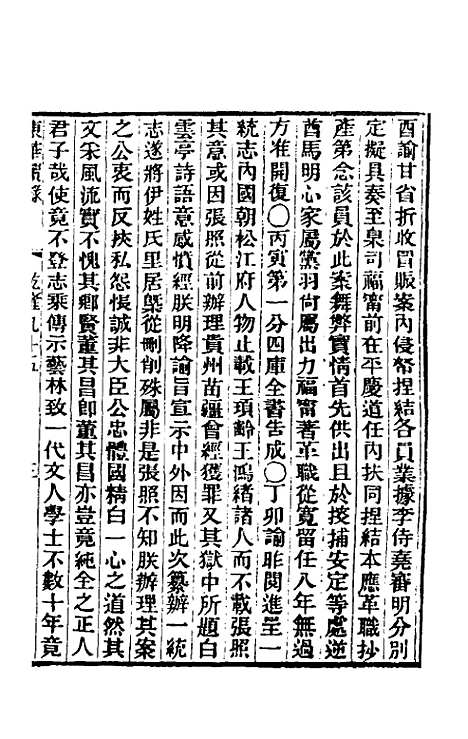 酉諭甘省折收冒賑案內侵帑捏結各員業據李侍堯審明分別
定擬具奏至臬司福甯前在平慶道任內扶同捏結本應革職抄
產第念該員於此案舞弊實情首先供出且於擒捕安定等處逆
酋馬明心家屬黨羽尚屬出力福甯著革職從寬留任八年無過
方准開復○丙寅第一分四庫全書告成○丁卯諭昨閱進呈一
統志內國朝松江府人物止載王頊齡王鴻緒諸人而不載張照
其意或因張照從前辦理貴州苗疆曾經獲罪又其獄中所題白
雲亭詩語意感憤經朕明降諭旨宣示中外因而此次纂辦一統
志遂將伊姓氏里居槩從刪削殊屬非是張照不知朕辦理其案
之公衷而反挾私怨悵誠非大臣公忠體國精白一心之道然其
文采風流實不愧其鄉賢董其昌卽董其昌亦豈竟純全之正人
君子哉使竟不登志乘傳示藝林致一代文人學士不數十年竟
東華續錄 乾隆九十五 三